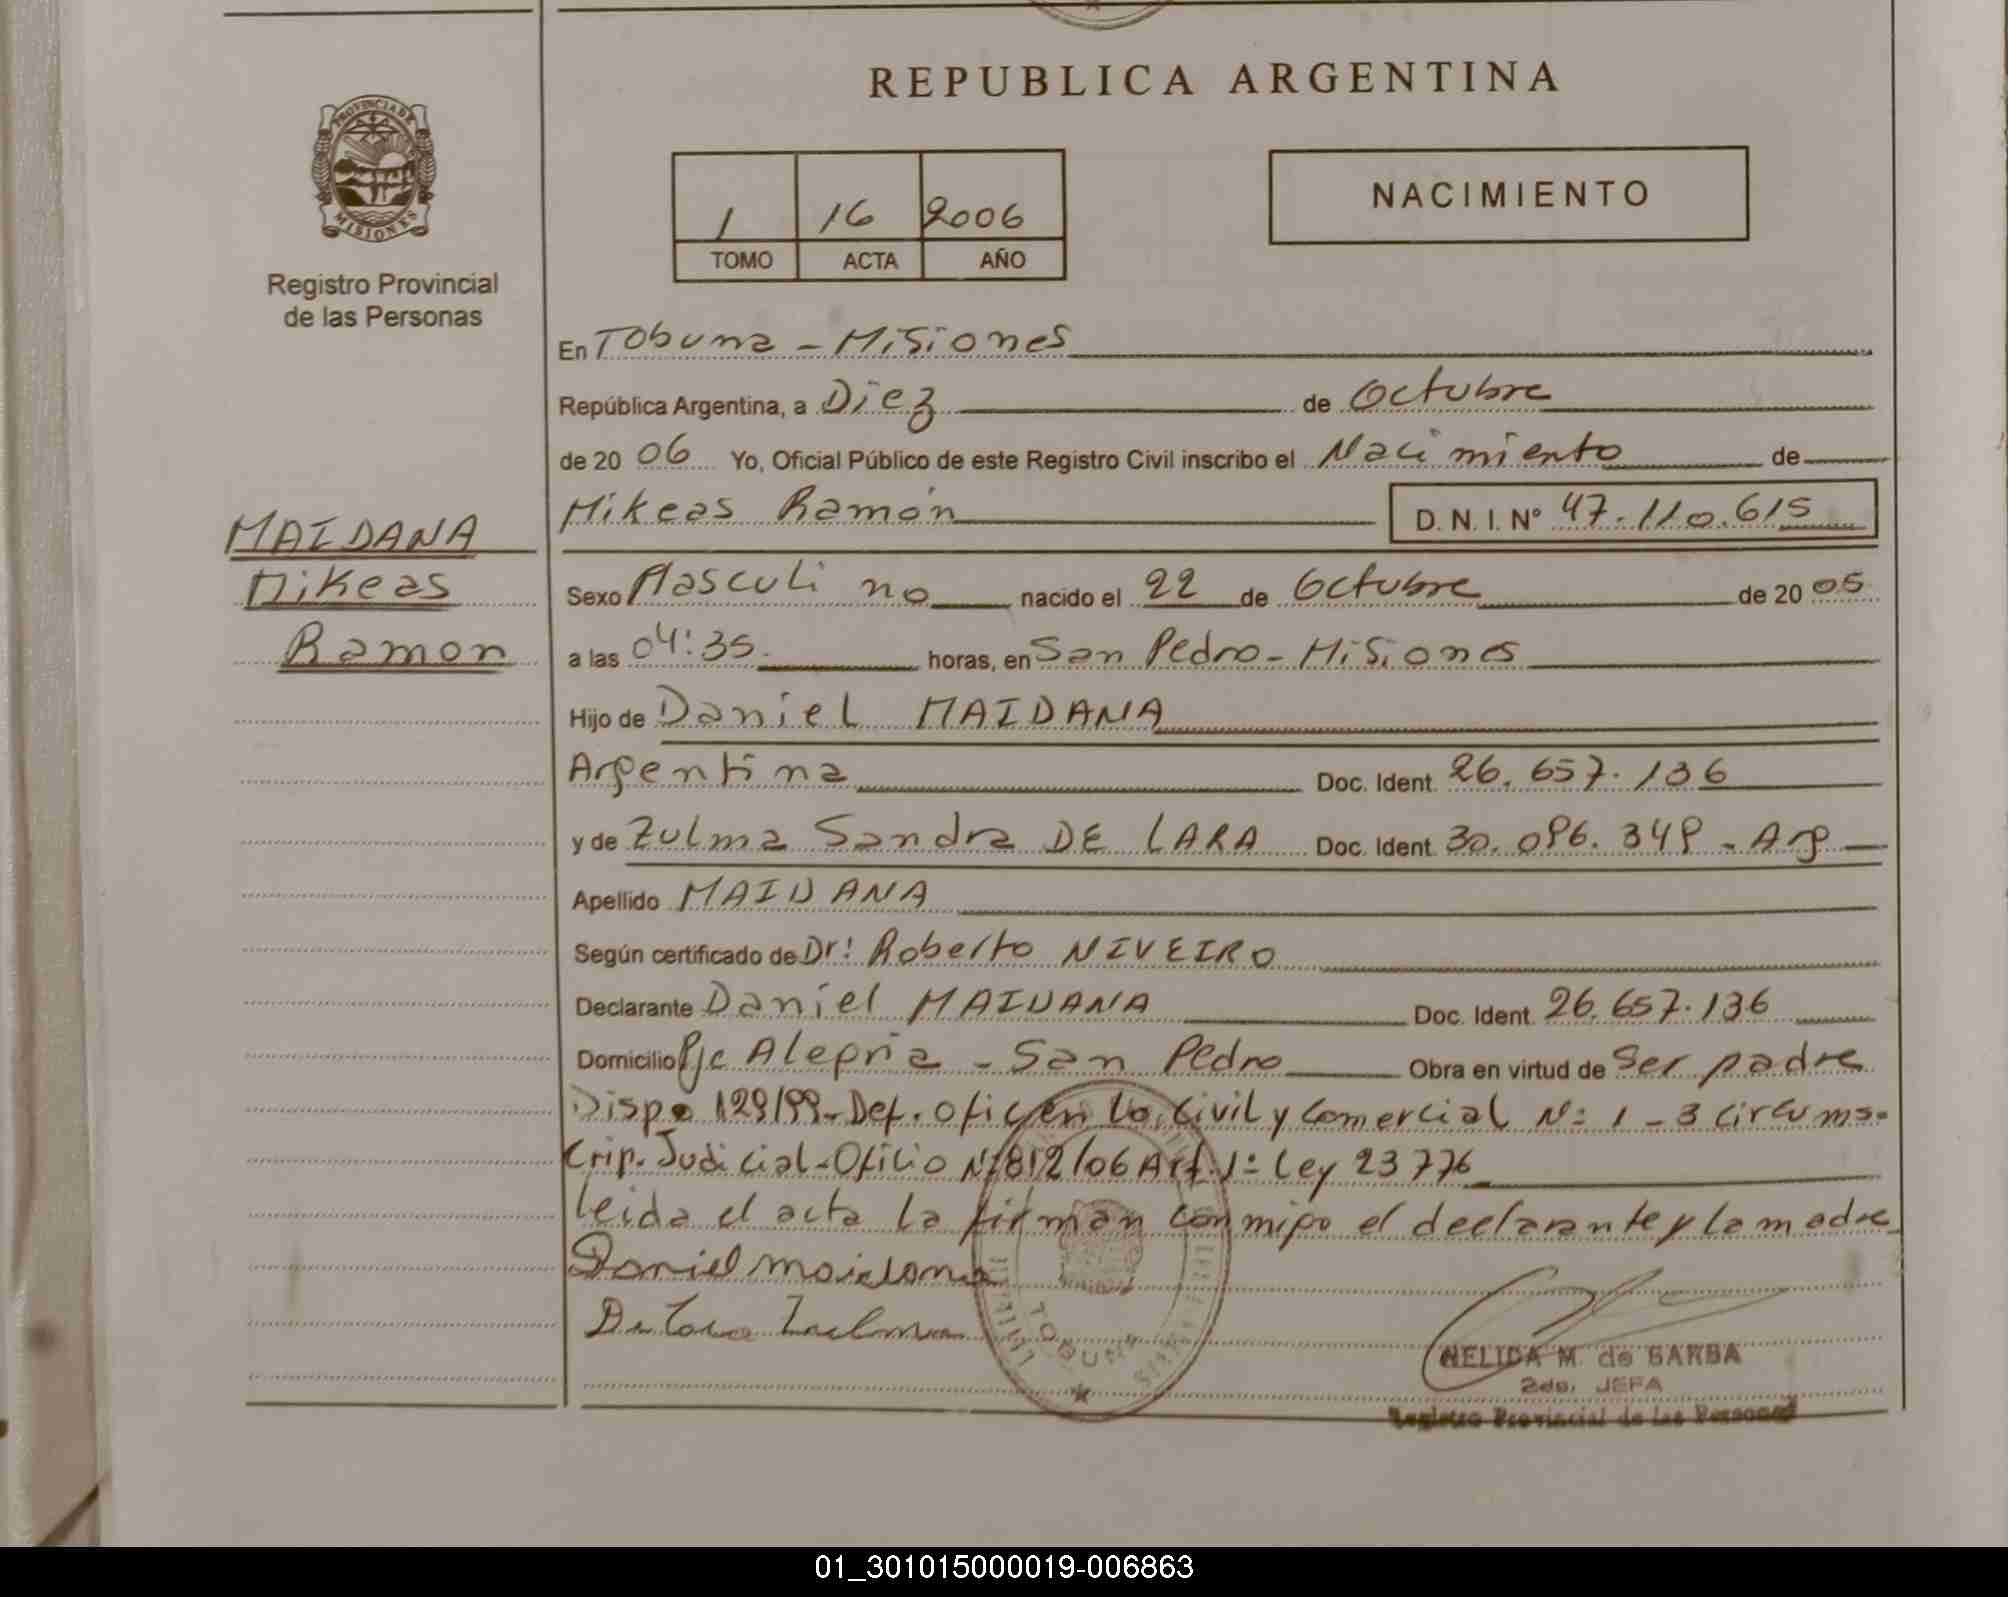 REPUBLICA ARGENTINA
PROVINCIA DE MISIONES
Registro Provincial
de las Personas
1 16 2006
TOMO ACTA AÑO
NACIMIENTO
En Tobuna - Misiones
República Argentina, a Diez de Octubre
de 20 06 Yo, Oficial Público de este Registro Civil inscribo el Nacimiento de
Mikeas Ramón D. N. I. Nº 47.110.615
MAIDANA
Mikeas
Ramon
Sexo Masculino nacido el 22 de Octubre de 20 05
a las 04:35 horas, en San Pedro - Misiones
Hijo de Daniel MAIDANA
Argentina Doc. Ident. 26.657.136
y de Zulma Sandra DE LARA Doc. Ident. 30.096.349 - Arg
Apellido MAIDANA
Según certificado de Dr: Roberto NIVEIRO
Declarante Daniel MAIDANA Doc. Ident. 26.657.136
Domicilio Pje Alegria - San Pedro Obra en virtud de Ser padre
Dispo 129/99 - Def. Ofic. en lo Civil y Comercial Nº 1 - 3 Circuns-
crip. Judicial - Oficio Nº 812/06 Art. 1º Ley 23776
leida el acta la firman conmigo el declarante y la madre
Daniel Maidana
De Lara Zulma
TOBUNA
NELIDA M. de BARBA
2da. JEFA
Registro Provincial de las Personas
01_301015000019-006863